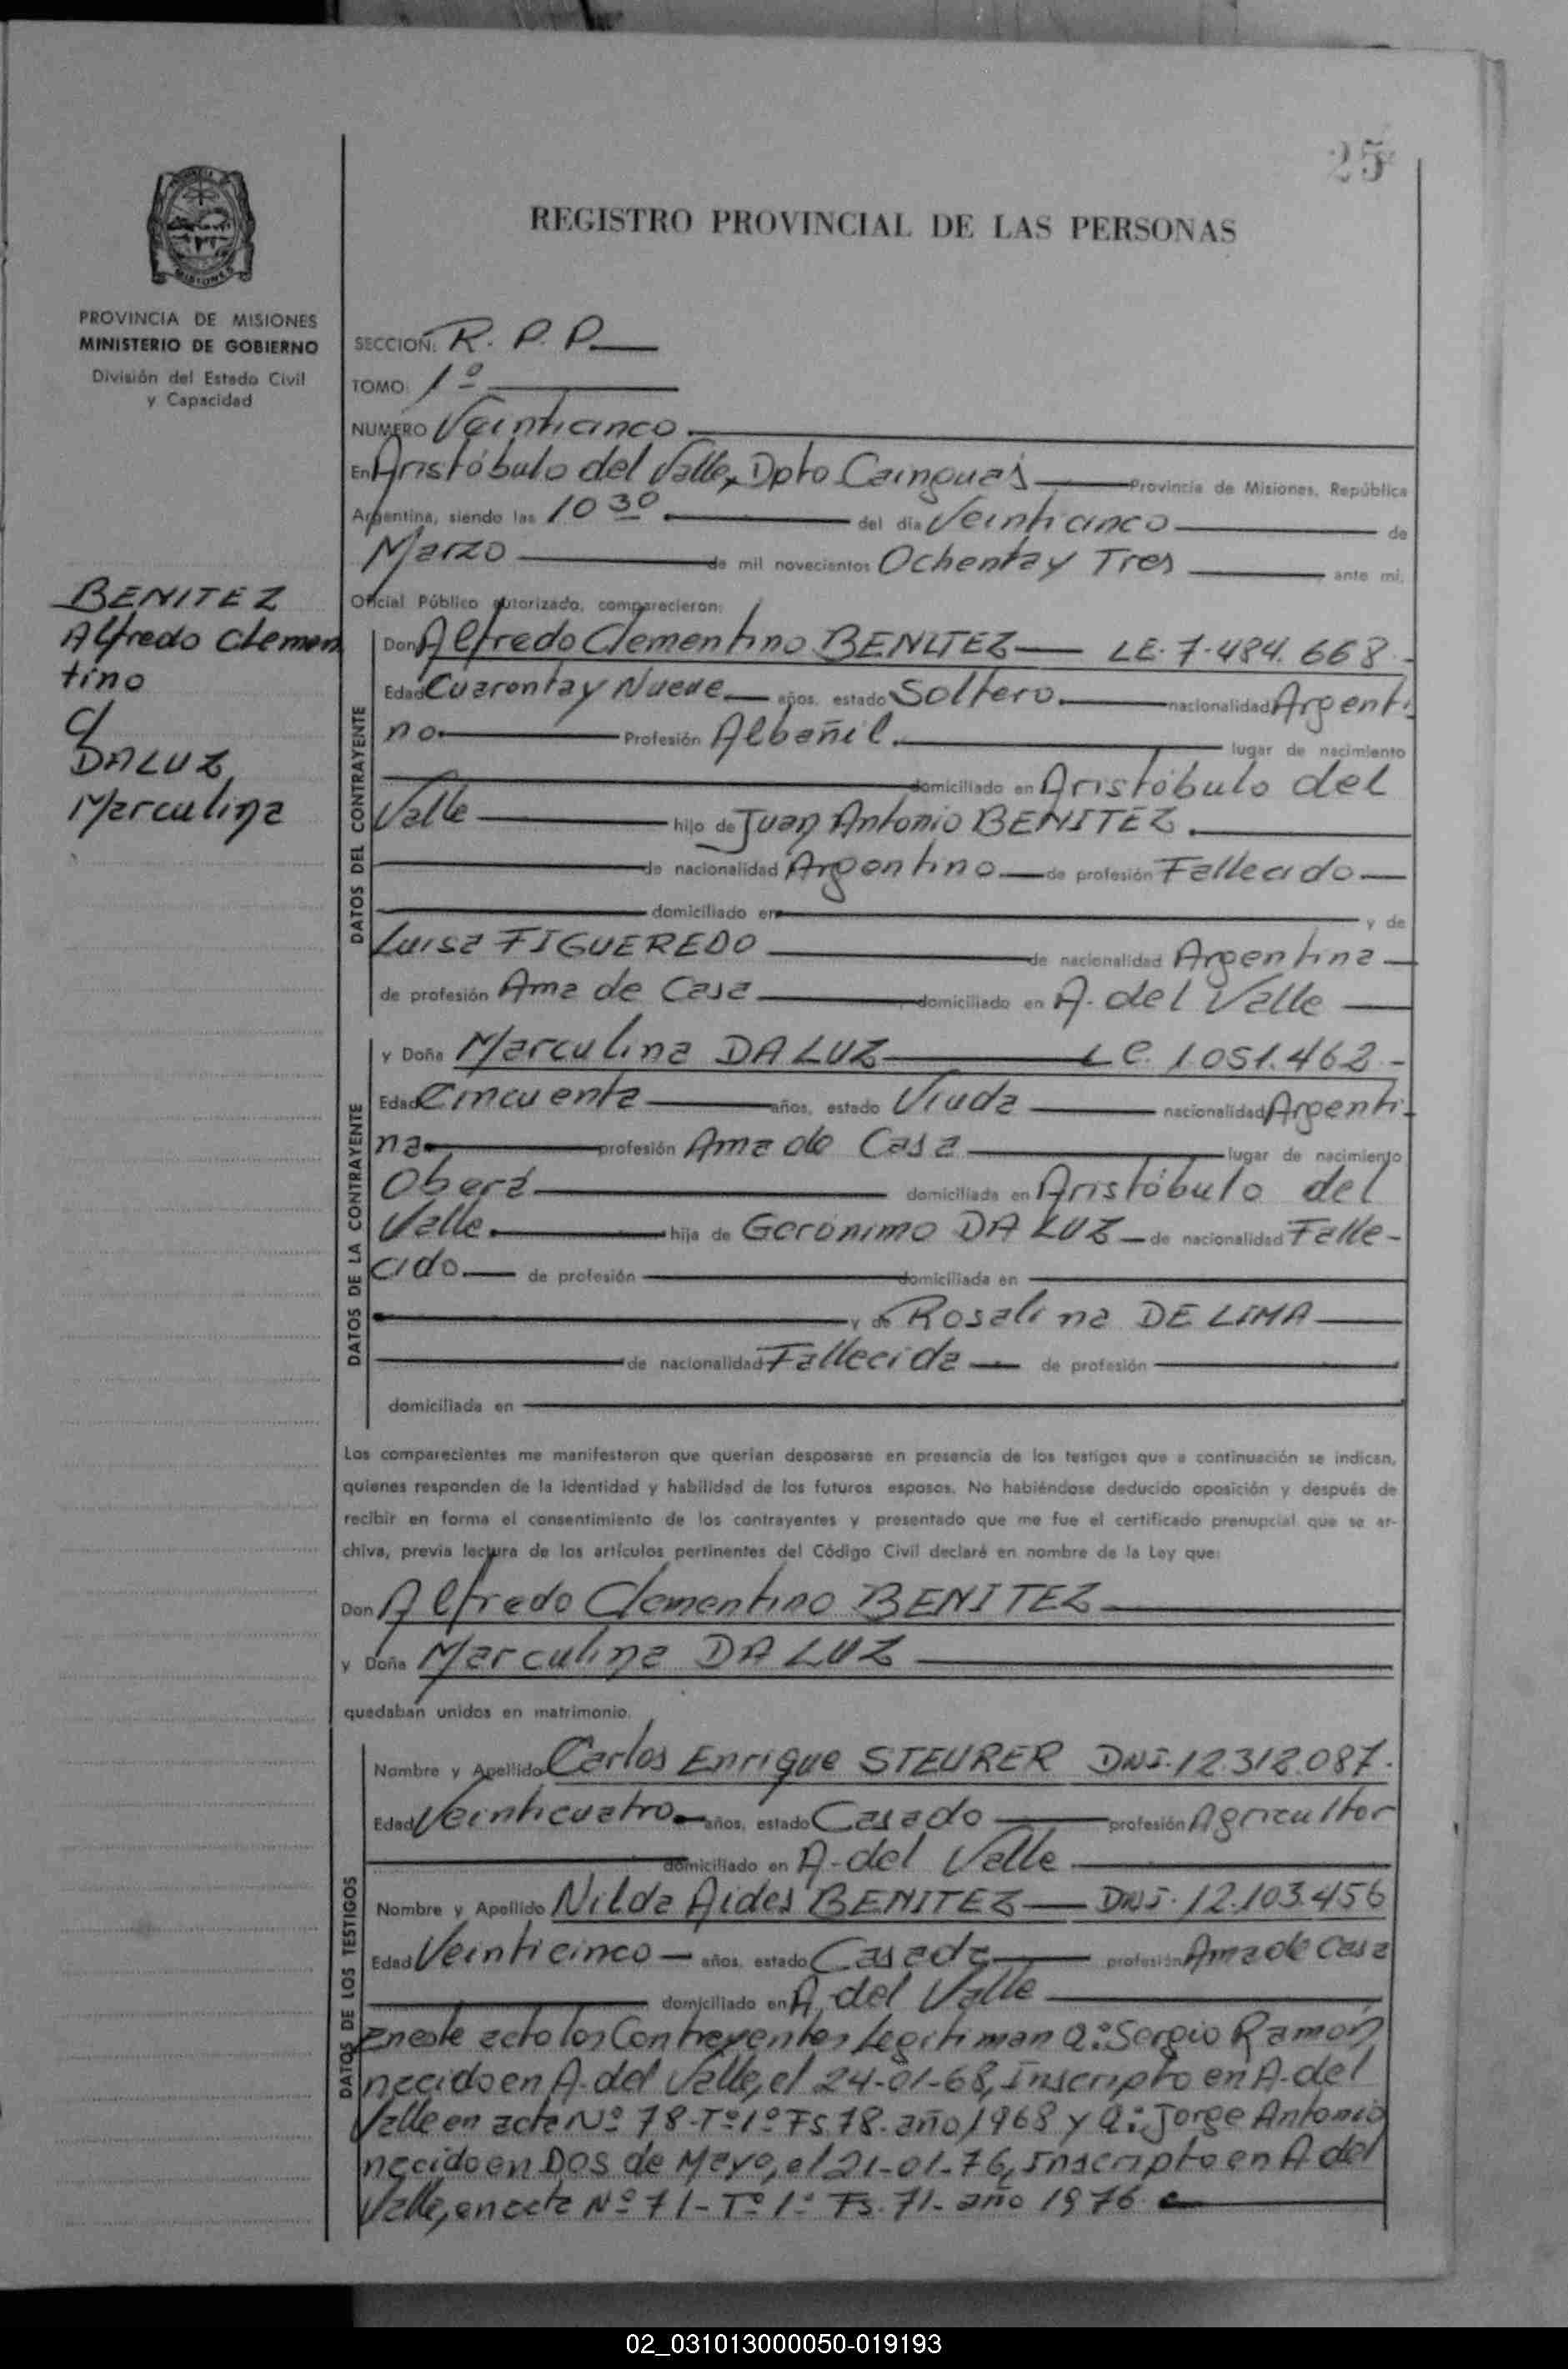 25
REGISTRO PROVINCIAL DE LAS PERSONAS
MISIONES
PROVINCIA DE MISIONES
MINISTERIO DE GOBIERNO
División del Estado Civil
y Capacidad
BENITEZ
Alfredo Clemen
tino
c/
DA LUZ,
Marculina
SECCION: R. P. P.
TOMO: 1º
NUMERO Veinticinco.
En Aristóbulo del Valle, Dpto Cainguás Provincia de Misiones, República
Argentina, siendo las 10 30 del día Veinticinco de
Marzo de mil novecientos Ochenta y Tres ante mí,
Oficial Público autorizado, comparecieron:
DATOS DEL CONTRAYENTE
Don Alfredo Clementino BENITEZ LE. 7.484.668.-
Edad Cuarenta y Nueve años, estado Soltero. nacionalidad Argenti
no. Profesión Albañil. lugar de nacimiento
domiciliado en Aristóbulo del
Valle hijo de Juan Antonio BENITEZ.
de nacionalidad Argentino de profesión Fallecido
domiciliado en y de
Luisa FIGUEREDO de nacionalidad Argentina
de profesión Ama de Casa domiciliado en A. del Valle
DATOS DE LA CONTRAYENTE
y Doña Marculina DA LUZ LC. 1.051.462.-
Edad Cincuenta años, estado Viuda nacionalidad Argenti-
na. profesión Ama de Casa lugar de nacimiento
Oberá domiciliada en Aristóbulo del
Valle. hija de Gerónimo DA LUZ de nacionalidad Falle-
cido. de profesión domiciliada en
y de Rosalina DE LIMA
de nacionalidad Fallecida de profesión
domiciliada en
Los comparecientes me manifestaron que querían desposarse en presencia de los testigos que a continuación se indican,
quienes responden de la identidad y habilidad de los futuros esposos. No habiéndose deducido oposición y después de
recibir en forma el consentimiento de los contrayentes y presentado que me fue el certificado prenupcial que se ar-
chiva, previa lectura de los artículos pertinentes del Código Civil declaré en nombre de la Ley que:
Don Alfredo Clementino BENITEZ
y Doña Marculina DA LUZ
quedaban unidos en matrimonio.
DATOS DE LOS TESTIGOS
Nombre y Apellido Carlos Enrique STEURER DNI. 12.312.087.
Edad Veinticuatro años, estado Casado profesión Agricultor
domiciliado en A. del Valle
Nombre y Apellido Nilda Aides BENITEZ DNI. 12.103.456
Edad Veinticinco años, estado Casada profesión Ama de Casa
domiciliado en A. del Valle
En este acto los Contrayentes Legitiman a: Sergio Ramón
nacido en A. del Valle, el 24-01-68, Inscripto en A. del
Valle en acta Nº 78-Tº 1º Fs. 78. año 1968 y a: Jorge Antonio
nacido en Dos de Mayo, el 21-01-76, Inscripto en A del
Valle, en acta Nº 71-Tº 1º Fs. 71- año 1976.
02_031013000050-019193